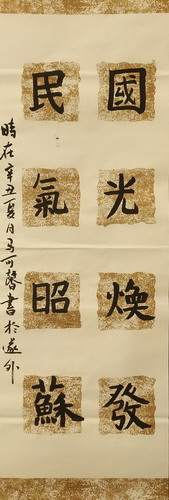 國光焕發
民氣昭蘇
時在辛丑夏月馬可馨書於遂外